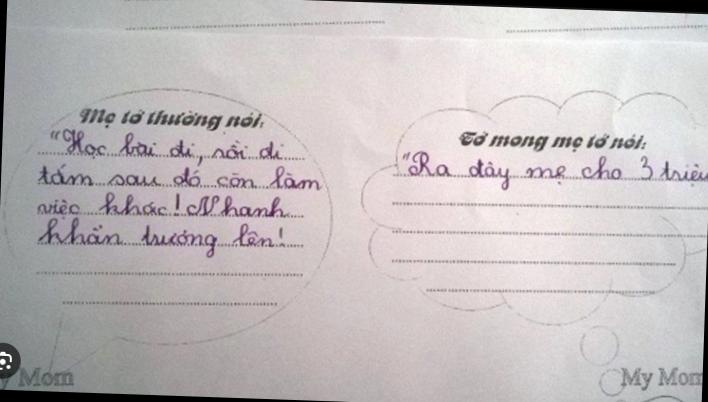 Mẹ tớ thường nói:
"Học bài đi, rồi đi
tắm sau đó còn làm
việc khác! Nhanh
khẩn trương lên!
Tớ mong mẹ tớ nói:
"Ra đây mẹ cho 3 triệu
y Mom
My Mom